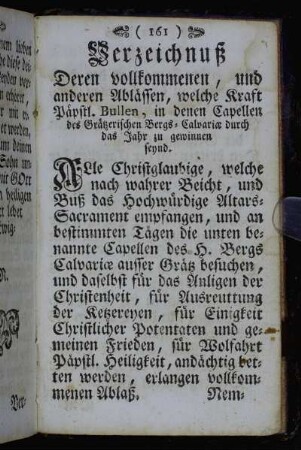 ( 161 )
Verzeichnuß
Deren vollkommenen, und
anderen Ablässen, welche Kraft
Päpstl. Bullen, in denen Capellen
des Grätzerischen Bergs-Calvariæ durch
das Jahr zu gewinnen
seynd.
ALle Christglaubige, welche
nach wahrer Beicht, und
Buß das Hochwürdige Altars-
Sacrament empfangen, und an
bestimmten Tägen die unten be-
nannte Capellen des H. Bergs
Calvariæ ausser Grätz besuchen,
und daselbst für das Anligen der
Christenheit, für Ausreuttung
der Ketzereyen, für Einigkeit
Christlicher Potentaten und ge-
meinen Frieden, für Wolfahrt
Päpstl. Heiligkeit, andächtig bet-
ten werden, erlangen vollkom-
menen Ablaß.
Nem-